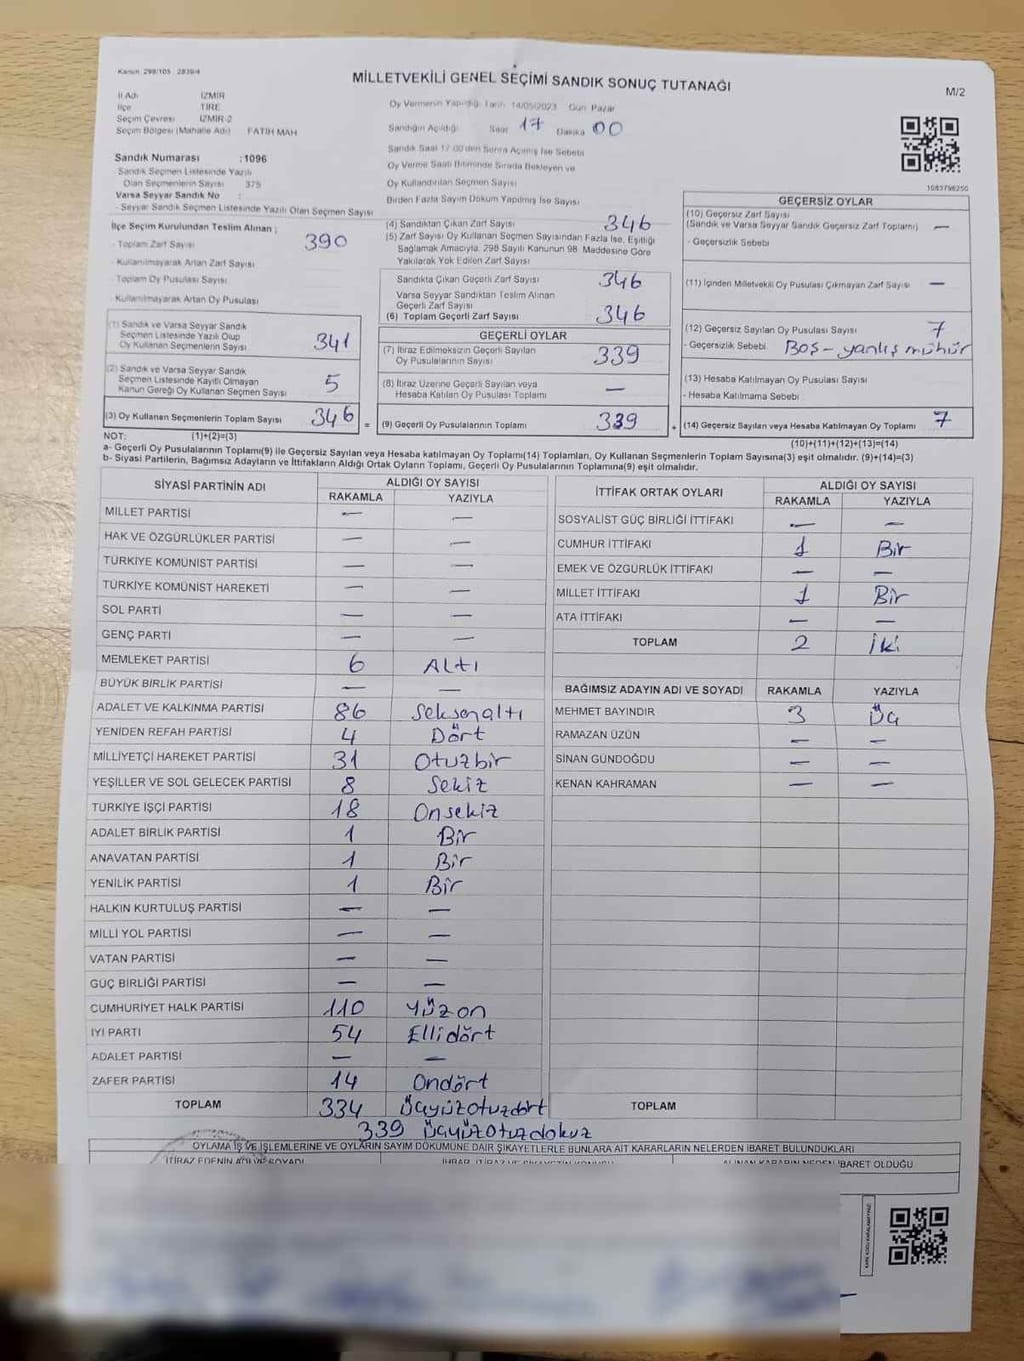 Kanun 298/105 2839/4
MİLLETVEKİLİ GENEL SEÇİMİ SANDIK SONUÇ TUTANAĞI
M/2
İl Adı İZMİR
İlçe TİRE
Seçim Çevresi İZMİR-2
Seçim Bölgesi (Mahalle Adı) FATİH MAH
Oy Vermenin Yapıldığı Tarih 14/05/2023 Gün Pazar
Sandığın Açıldığı Saat 17 Dakika 00
Sandık Saat 17:00'den Sonra Açılmış İse Sebebi
Oy Verme Saati Bitiminde Sırada Bekleyen ve
Oy Kullandırılan Seçmen Sayısı
Birden Fazla Sayım Döküm Yapılmış İse Sayısı
Sandık Numarası : 1096
Sandık Seçmen Listesinde Yazılı
Olan Seçmenlerin Sayısı 375
Varsa Seyyar Sandık No
- Seyyar Sandık Seçmen Listesinde Yazılı Olan Seçmen Sayısı
1083796250
İlçe Seçim Kurulundan Teslim Alınan ;
- Toplam Zarf Sayısı 390
- Kullanılmayarak Artan Zarf Sayısı
- Toplam Oy Pusulası Sayısı
- Kullanılmayarak Artan Oy Pusulası
(1) Sandık ve Varsa Seyyar Sandık
Seçmen Listesinde Yazılı Olup
Oy Kullanan Seçmenlerin Sayısı 341
(2) Sandık ve Varsa Seyyar Sandık
Seçmen Listesinde Kayıtlı Olmayan
Kanun Gereği Oy Kullanan Seçmen Sayısı 5
(3) Oy Kullanan Seçmenlerin Toplam Sayısı 346 =
(4) Sandıktan Çıkan Zarf Sayısı 346
(5) Zarf Sayısı Oy Kullanan Seçmen Sayısından Fazla İse, Eşitliği
Sağlamak Amacıyla, 298 Sayılı Kanunun 98. Maddesine Göre
Yakılarak Yok Edilen Zarf Sayısı
Sandıkta Çıkan Geçerli Zarf Sayısı 346
Varsa Seyyar Sandıktan Teslim Alınan
Geçerli Zarf Sayısı
(6) Toplam Geçerli Zarf Sayısı 346
GEÇERLİ OYLAR
(7) İtiraz Edilmeksizin Geçerli Sayılan
Oy Pusulalarının Sayısı 339
(8) İtiraz Üzerine Geçerli Sayılan veya
Hesaba Katılan Oy Pusulası Toplamı —
(9) Geçerli Oy Pusulalarının Toplamı 339 +
GEÇERSİZ OYLAR
(10) Geçersiz Zarf Sayısı
(Sandık ve Varsa Seyyar Sandık Geçersiz Zarf Toplamı) —
- Geçersizlik Sebebi
(11) İçinden Milletvekili Oy Pusulası Çıkmayan Zarf Sayısı —
(12) Geçersiz Sayılan Oy Pusulası Sayısı 7
- Geçersizlik Sebebi Boş - yanlış mühür
(13) Hesaba Katılmayan Oy Pusulası Sayısı
- Hesaba Katılmama Sebebi
(14) Geçersiz Sayılan veya Hesaba Katılmayan Oy Toplamı 7
NOT: (1)+(2)=(3)
(10)+(11)+(12)+(13)=(14)
a- Geçerli Oy Pusulalarının Toplamı(9) ile Geçersiz Sayılan veya Hesaba katılmayan Oy Toplamı(14) Toplamları, Oy Kullanan Seçmenlerin Toplam Sayısına(3) eşit olmalıdır. (9)+(14)=(3)
b- Siyasi Partilerin, Bağımsız Adayların ve İttifakların Aldığı Ortak Oyların Toplamı, Geçerli Oy Pusulalarının Toplamına(9) eşit olmalıdır.
SİYASİ PARTİNİN ADI ALDIĞI OY SAYISI
RAKAMLA YAZIYLA
MİLLET PARTİSİ — —
HAK VE ÖZGÜRLÜKLER PARTİSİ — —
TÜRKİYE KOMÜNİST PARTİSİ — —
TÜRKİYE KOMÜNİST HAREKETİ — —
SOL PARTİ — —
GENÇ PARTİ — —
MEMLEKET PARTİSİ 6 Altı
BÜYÜK BİRLİK PARTİSİ — —
ADALET VE KALKINMA PARTİSİ 86 Seksenaltı
YENİDEN REFAH PARTİSİ 4 Dört
MİLLİYETÇİ HAREKET PARTİSİ 31 Otuzbir
YEŞİLLER VE SOL GELECEK PARTİSİ 8 Sekiz
TÜRKİYE İŞÇİ PARTİSİ 18 Onsekiz
ADALET BİRLİK PARTİSİ 1 Bir
ANAVATAN PARTİSİ 1 Bir
YENİLİK PARTİSİ 1 Bir
HALKIN KURTULUŞ PARTİSİ — —
MİLLİ YOL PARTİSİ — —
VATAN PARTİSİ — —
GÜÇ BİRLİĞİ PARTİSİ — —
CUMHURİYET HALK PARTİSİ 110 Yüzon
İYİ PARTİ 54 Ellidört
ADALET PARTİSİ — —
ZAFER PARTİSİ 14 Ondört
TOPLAM 334 Üçyüzotuzdört
339 Üçyüzotuzdokuz
İTTİFAK ORTAK OYLARI ALDIĞI OY SAYISI
RAKAMLA YAZIYLA
SOSYALİST GÜÇ BİRLİĞİ İTTİFAKI — —
CUMHUR İTTİFAKI 1 Bir
EMEK VE ÖZGÜRLÜK İTTİFAKI — —
MİLLET İTTİFAKI 1 Bir
ATA İTTİFAKI — —
TOPLAM 2 İki
BAĞIMSIZ ADAYIN ADI VE SOYADI RAKAMLA YAZIYLA
MEHMET BAYINDIR 3 Üç
RAMAZAN ÜZÜN — —
SİNAN GÜNDOĞDU — —
KENAN KAHRAMAN — —
TOPLAM
OYLAMA İŞ VE İŞLEMLERİNE VE OYLARIN SAYIM DÖKÜMÜNE DAİR ŞİKAYETLERLE BUNLARA AİT KARARLARIN NELERDEN İBARET BULUNDUKLARI
İTİRAZ EDENİN ADI VE SOYADI
ALINAN KARARIN NEDEN İBARET OLDUĞU